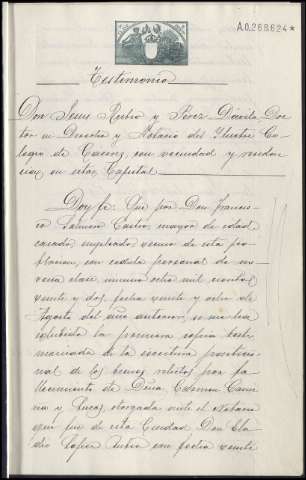 A.0.268.624*
Testimonio
Don Jesus Rubio y Perez Dávila, Doc-
tor en Derecho y Notario del Ilustre Co-
legio de Cáceres, con vecindad y residen-
cia en esta Capital.
Doy fe: Que por Don Francis-
co Salmeron Castro, mayor de edad,
casado, empleado, vecino de esta po-
blacion, con cedula personal de no-
vena clase, numero ocho mil ciento
veinte y dos, fecha veinte y ocho de
Agosto del año anterior, se me ha
exhibido la primera copia testi-
moniada de la escritura particio-
nal de los bienes relictos por fa-
llecimiento de Doña Carmen
y otorgada ante el Notario
que fue de esta Ciudad Don Ela-
dio Lopez Rubio con fecha veinte